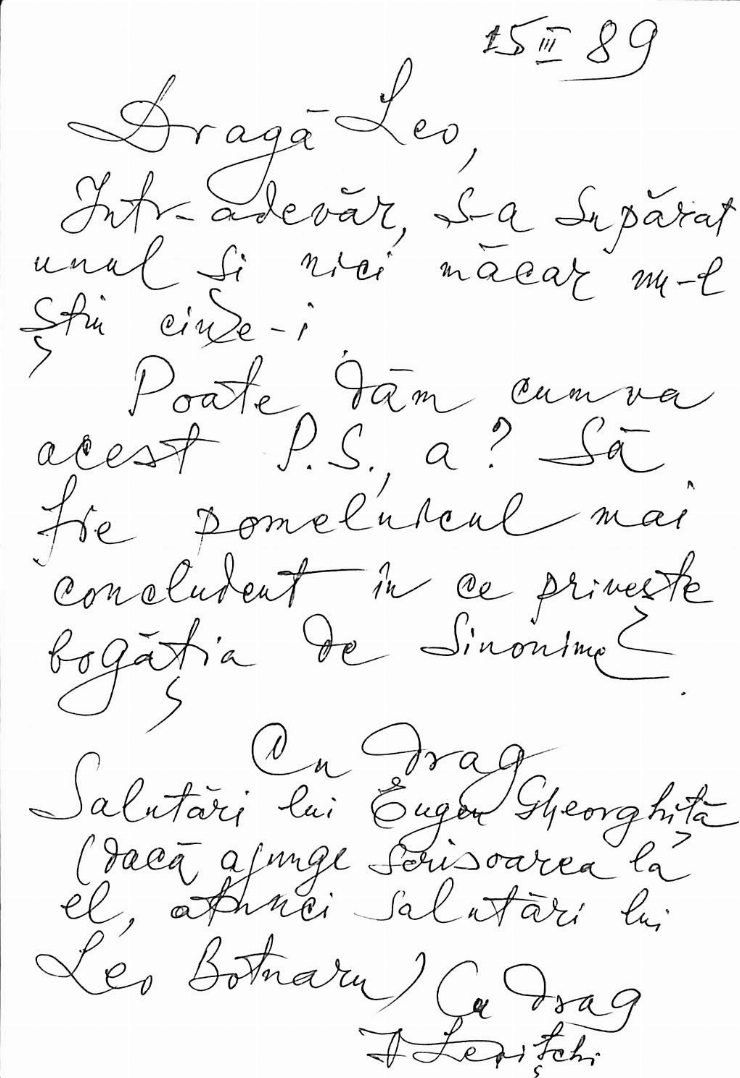 15 III 89
Dragă Leo,
Într-adevăr, s-a supărat
unul și nici măcar nu-l
știu cine-i.
Poate dăm cumva
acest P.S., a? Să
fie pomelnicul mai
concludent în ce privește
bogăția de sinonime.
Cu drag
Salutări lui Eugen Gheorghiță
(dacă ajunge scrisoarea la
el, atunci salutări lui
Leo Botnaru) Cu drag